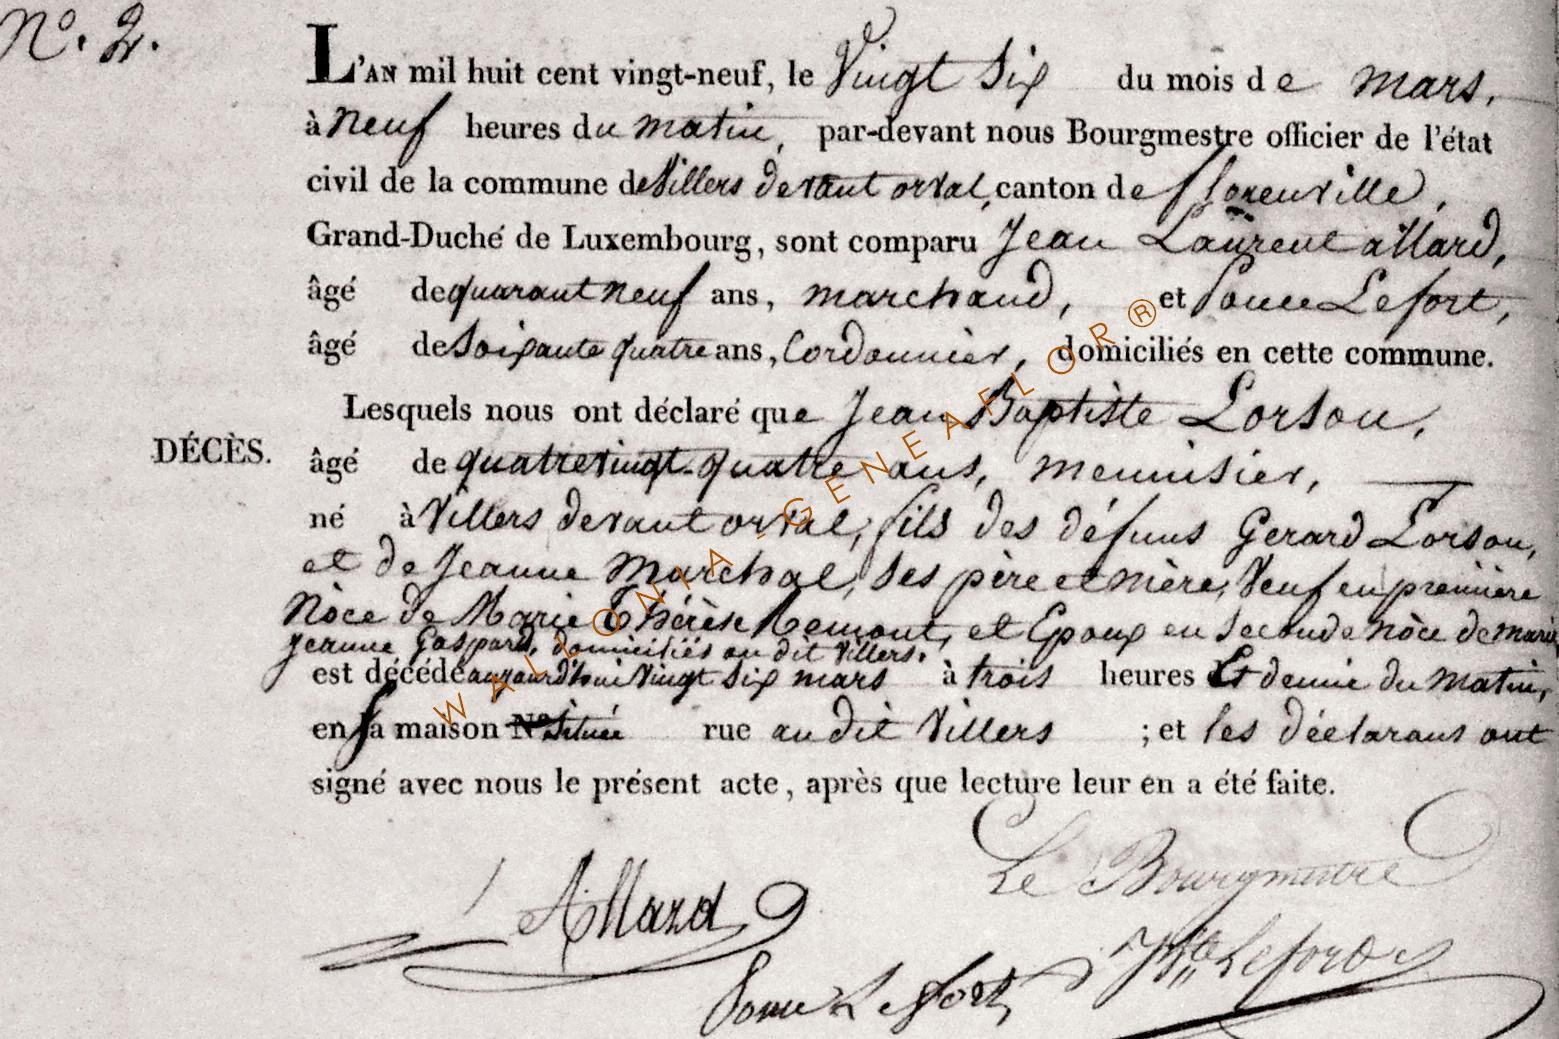 N.º 2.
L'AN mil huit cent vingt-neuf, le Vingt Six du mois de mars,
à neuf heures du matin, par-devant nous Bourgmestre officier de l'état
civil de la commune de Villers devant orval, canton de florenville,
Grand-Duché de Luxembourg, sont comparu Jean Laurent allard,
âgé de quarant neuf ans, marchand, et Ponce Lefort,
âgé de Soixante quatre ans, Cordonnier, domiciliés en cette commune.
Lesquels nous ont déclaré que Jean Baptiste Lorson,
DÉCÈS. âgé de quatrevingt-quatre ans, menuisier,
né à Villers devant orval, fils des défuns Gerard Lorson,
et de Jeanne Marchal, ses père et mère, Veuf en première
Nôce de Marie Thérèse Remont, et Epoux en seconde nôce de marie
jeanne Gaspard, domiciliés au dit Villers.
est décédé aujourd'hui Vingt six mars à trois heures Et demie du matin,
en sa maison N.º située rue au dit Villers ; et les déclarans ont
signé avec nous le présent acte, après que lecture leur en a été faite.
Le Bourgmestre
Allard
Lefort
Ponce Lefort
WALLONIA-GENEAFLOR®